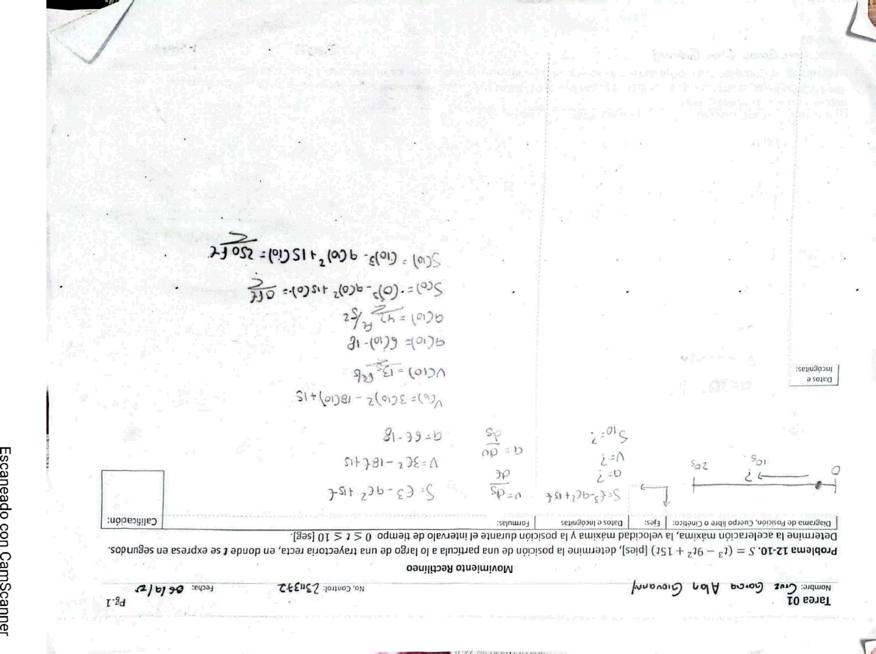 Tarea 01
Pg.1
Nombre: Cruz Garcia Alan Giovanny No. Control: Fecha:
Movimiento Rectilíneo
Problema 12-10. S = (t³ − 9t² + 15t) [pies], determine la posición de una partícula a lo largo de una trayectoria recta, en donde t se expresa en segundos.
Determine la aceleración máxima, la velocidad máxima y la posición durante el intervalo de tiempo 0 ≤ t ≤ 10 [seg].
Diagrama de Posición, Cuerpo libre o Cinético: Ejes: Datos e Incógnitas Formulas: Calificación:
0 10s 20s
?
S=t³-9t²+15t
a=?
V=?
S10=?
v=ds/dt
a=dv/ds
S= t³-9t²+15t
V=3t²-18t+15
a=6t-18
V(10)= 3(10)²-18(10)+15
V(10)=
a(10)= 6(10)-18
a(10)= 42 ft/s²
S(0)= (0)³-9(0)²+15(0)= 0ft
S(10)= (10)³-9(10)²+15(10)= 250 ft
Datos e
Incógnitas:
Escaneado con CamScanner